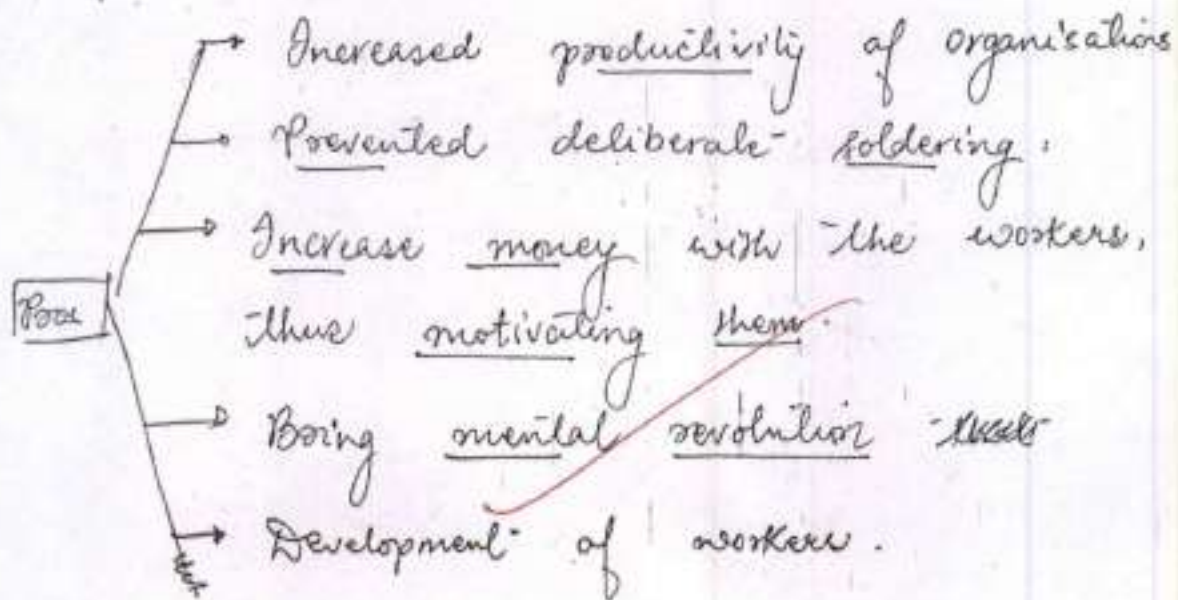 Increased productivity of organisations
Prevented deliberate soldering.
Increase money with the workers,
Pros
thus motivating them.
Bring mental revolution
Development of workers.